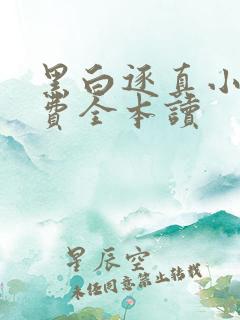 黑白逐真小
费全本读
星辰空
未经同意禁止转载